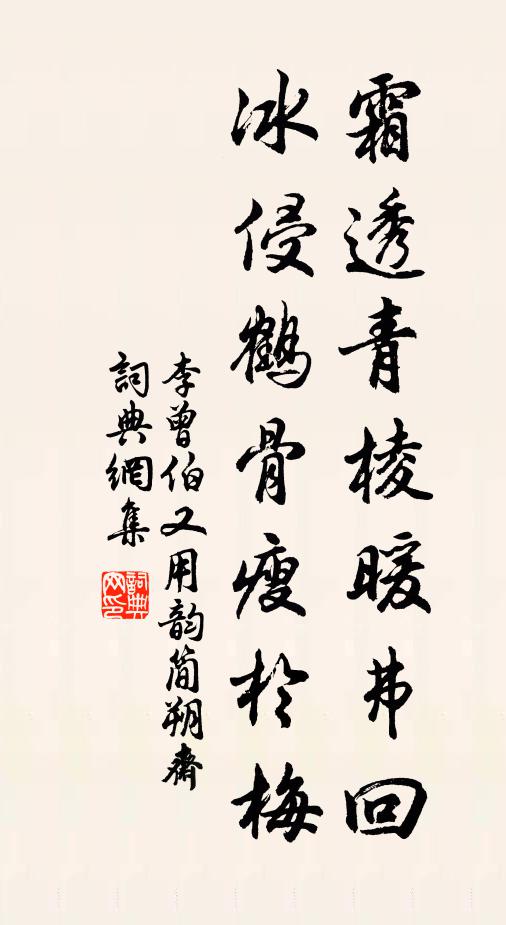 霜透青棱暖弗回
冰侵鶴骨瘦於梅
李曾伯又用韵簡朔齋
詞典網集
詞典
网印